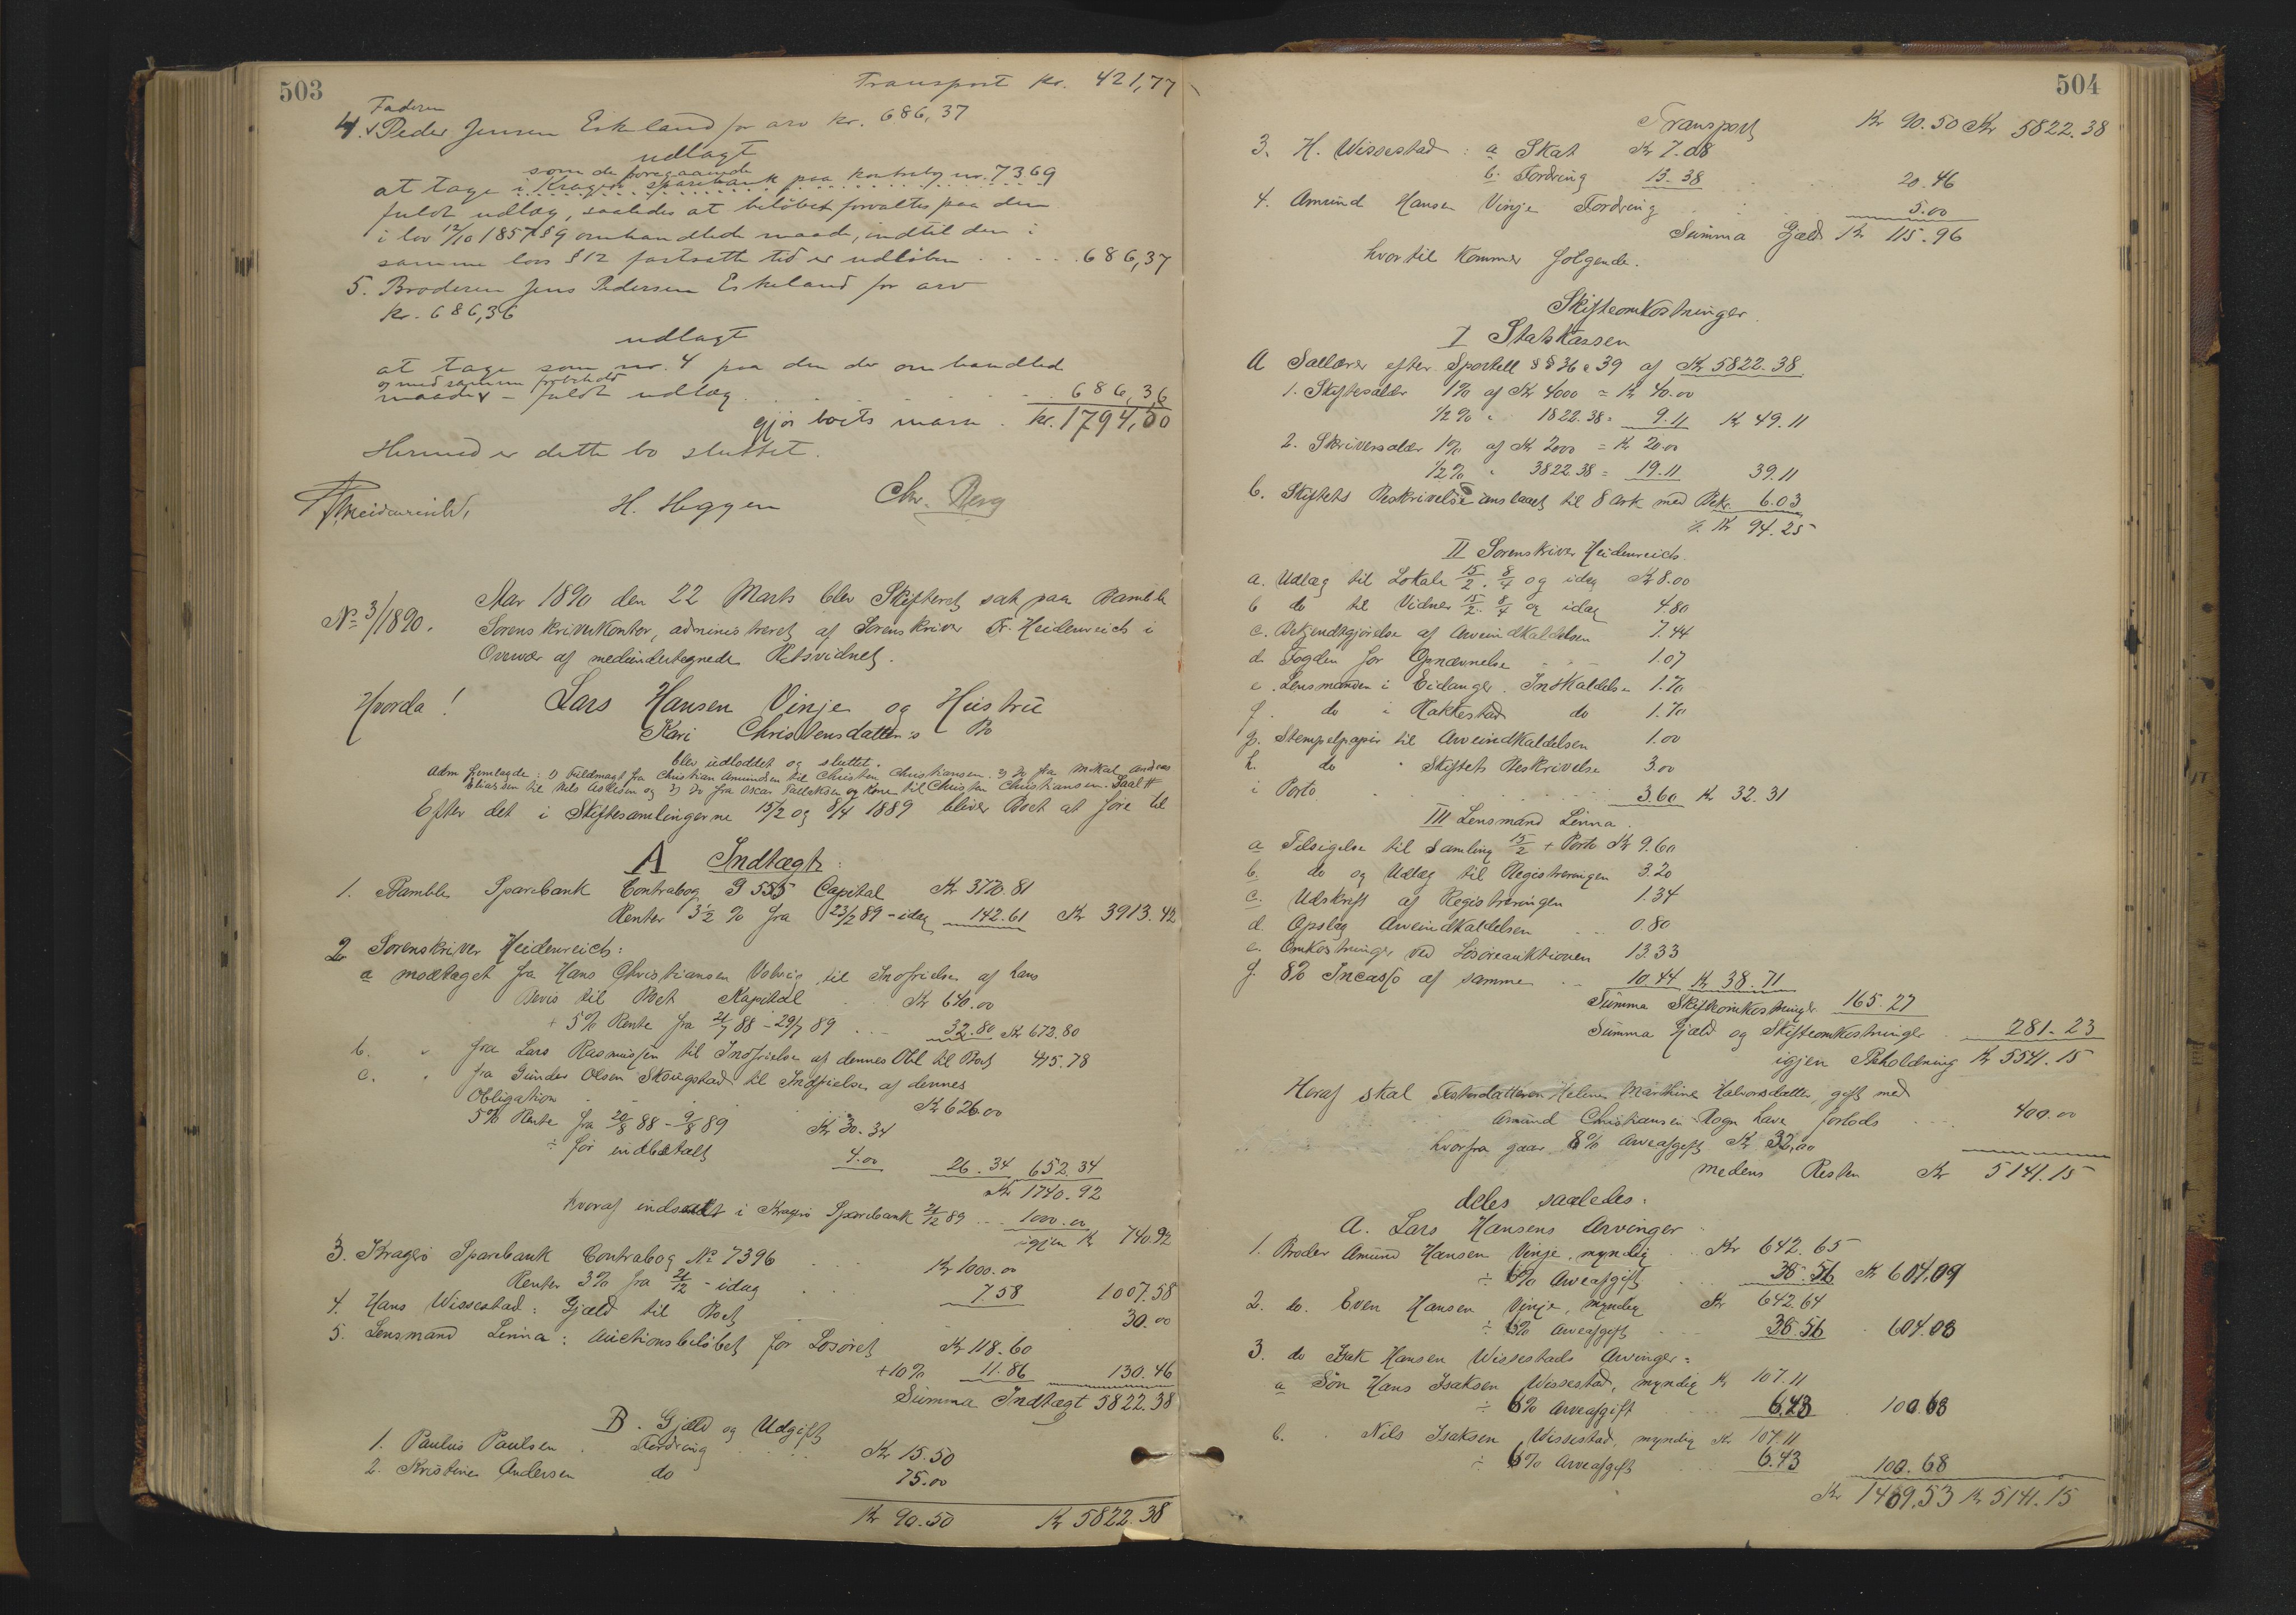 503
Transport kr. 421,77
Faderen
4. Peder Jensen Eskeland for arv kr. 686,37
udlagt
som de foregaaende
at tage i Kragerø sparebank paa kontrabog nr. 7369
fuldt udlæg, saaledes at beløbet forvaltes paa den
i lov 12/10 1857 § 9 omhandlede maade, indtil den i
samme lovs § 12 fastsatte tid er udløben . . . . 686,37
5. Broderen Jens Pedersen Eskeland for arv
kr. 686,36
udlagt
at tage som nr. 4 paa den der omhandlede
og med samme forbehold
maade - fuldt udlæg . . . . . 686,36
gjør boets masse . kr. 1794,50
Hermed er dette bo sluttet.
Heidenreich H. Heggen Chr. Berg
No 3/1890.
Aar 1890 den 22 Marts blev Skifteret sat paa Bamble
Sorenskriverkontor, administreret af Sorenskriver Fr. Heidenreich i
Overvær af medundertegnede Retsvidner.
Hvorda!
Lars Hansen Vinje og Hustru
Kari Christensdatters Bo
blev udloddet og sluttet.
Adm fremlagde: 1) Fuldmagt fra Christian Amundsen til Christen Christiansen. 2) Do fra Mikal Andreas
Eliassen til Nils Aslesen og 3) Do fra Oscar og Kone til Christen Christiansen.
Efter det i Skiftesamlingerne 15/2 og 8/4 1889 bliver Boet at føre til
A Indtægt:
1. Bamble Sparebank Contrabog 9555 Capital Kr 3770.81
Renter 3 1/2 % fra 23/2 89 - idag 142.61 Kr 3913.42
2 Sorenskriver Heidenreich:
a modtaget fra Hans Christiansen Valvig til Indfrielse af hans
Bevis til Boet Kapital Kr 640.00
+ 5% Rente fra 21/7 88 - 29/7 89 . . . 32.80 Kr 672.80
b. " fra Lars Rasmussen til Indfrielse af dennes Obl til Boet 415.78
c. " fra Gunder Olsen Skougstad til Indfrielse af dennes
Obligation . . . Kr 626.00
5% Rente fra 20/8 88 - 9/8 89 Kr 30.34
÷ før indbetalt 4.00 26.34 652.34
Kr 1740.92
hvoraf indsat i Kragerø Sparebank 21/12 89 . . . 1000.00
igjen Kr 740.92
3. Kragerø Sparebank Contrabog No 7396 . . . Kr 1000.00
Renter 3% fra 21/12 - idag . . 7.58 1007.58
4. Hans Wissestad: Gjæld til Boet . . . 30.00
5. Lensmand Linna: Auctionsbeløbet for Løsøret Kr 118.60
+10% 11.86 130.46
Summa Indtægt 5822.38
B. Gjæld og Udgift
1. Paulus Paulsen Fordring . . Kr 15.50
2. Kristine Andersen do 75.00
Kr 90.50 Kr 5822.38
504
Transport Kr 90.50 Kr 5822.38
3. H. Wissestad: a Skat Kr 7.08
b. Fordring 13.38 . . 20.46
4. Amund Hansen Vinje Fordring . . . 5.00
Summa Gjæld Kr 115.96
hvortil kommer følgende.
Skifteomkostninger
I Statskassen
A Sallærer efter Sportell §§ 36 & 39 af Kr 5822.38
1. Skiftesalær 1% af Kr 4000 = Kr 40.00
1/2 % " 1822.38 = 9.11 Kr 49.11
2. Skriversalær 1% af Kr 2000 = Kr 20.00
1/2 % " 3822.38 = 19.11 39.11
b. Skiftets Beskrivelse anslaaet til 8 Ark med Bekr. 6.03
Kr 94.25
II Sorenskriver Heidenreich.
a. Udlæg til Lokale 15/2. 8/4 og idag Kr 8.00
b do til Vidner 15/2. 8/4 og idag 4.80
c. Bekjendtgjørelse af Arveindkaldelsen 7.44
d. Fogden for Opnævnelse . . . 1.07
e. Lensmanden i Eidanger. Indkaldelse 1.70
f. do i Rakkestad do 1.70
g. Stempelpapir til Arveindkaldelsen 1.00
h. do " Skiftets Beskrivelse 3.00
i Porto . . . . 3.60 Kr 32.31
III Lensmand Linna.
a Tilsigelse til Samling 15/2 + Porto Kr 9.60
b do og Udlæg til Registreringen 3.20
c. Udskrift af Registreringen 1.34
d. Opslag Arveindkaldelsen . . . 0.80
e. Omkostninger ved Løsøreauktionen 13.33
f. 8% Incasso af samme . . . 10.44 Kr 38.71
Summa Skifteomkostninger 165.27
Summa Gjæld og Skifteomkostninger 281.23
igjen Beholdning Kr 5541.15
Heraf skal Fosterdatteren Helene Marthine Halvorsdatter, gift med
Amund Christiansen Rogn have forlods . . . . 400.00
hvorfra gaar 8% Arveafgift Kr 32.00
medens Resten Kr 5141.15
deles saaledes:
A. Lars Hansens Arvinger
1. Broder Amund Hansen Vinje, myndig . . Kr 642.65
÷ 6% Arveafgift . . . 38.56 Kr 604.09
2. do. Even Hansen Vinje, myndig Kr 642.64
÷ 6% Arveafgift . . . 38.56 . 604.08
3. do Isak Hansen Wissestads Arvinger:
a Søn Hans Isaksen Wissestad, myndig Kr 107.11
÷ 6% Arveafgift . . . 6.43 . 100.68
b. " Nils Isaksen Wissestad, myndig Kr 107.11
÷ 6% Arveafgift . . . 6.43 100.68
Kr 1409.53 Kr 5141.15